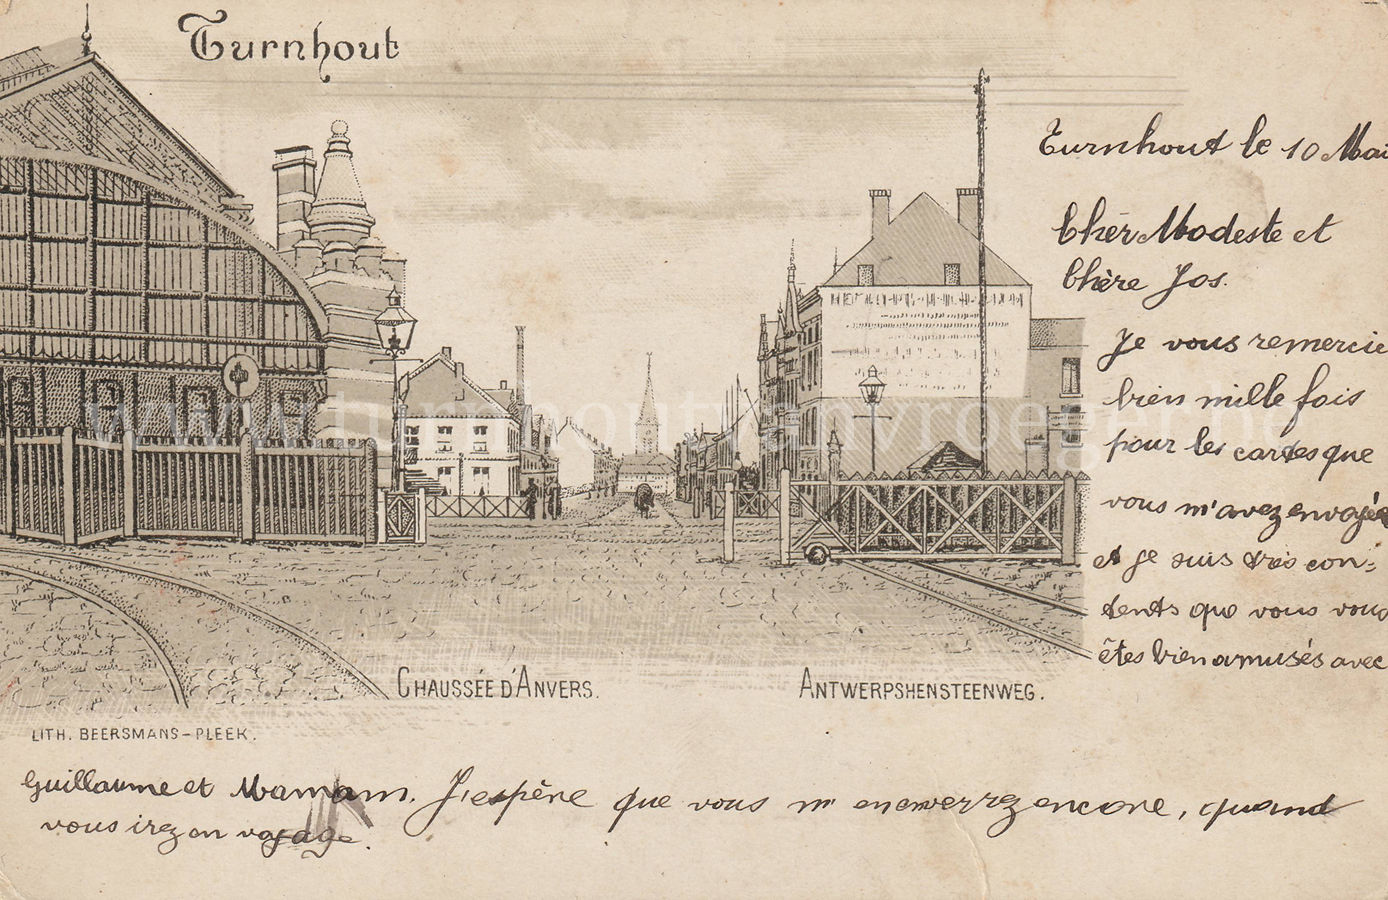 Turnhout
Turnhout le 10 Mai
Chèr Modeste et
Chère Jos.
Je vous remercie
bien mille fois
pour les cartes que
vous m'avez envoyée
et je suis très con-
tents que vous vous
êtes bien amusés avec
CHAUSSÉE D'ANVERS.
ANTWERPSHENSTEENWEG.
LITH. BEERSMANS-PLEEK.
Guillaume et Maman. J'espère que vous m'enverrez encore, quand
vous irez en voyage.